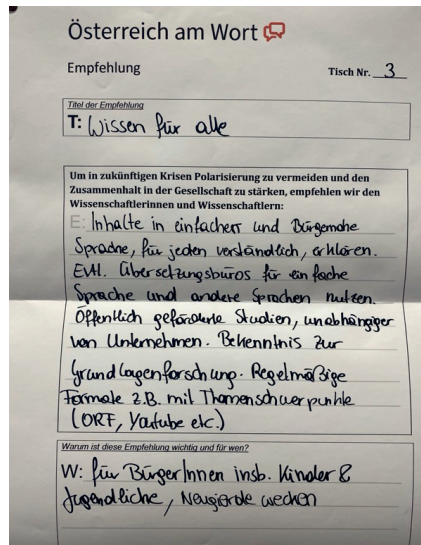 Österreich am Wort
Empfehlung
Tisch Nr. 3
Titel der Empfehlung
T: Wissen für alle
Um in zukünftigen Krisen Polarisierung zu vermeiden und den
Zusammenhalt in der Gesellschaft zu stärken, empfehlen wir den
Wissenschaftlerinnen und Wissenschaftlern:
E: Inhalte in einfacher und Bürgernahe
Sprache, für jeden verständlich, erklären.
Evtl. Übersetzungsbüros für einfache
Sprache und andere Sprachen nutzen.
Öffentlich geförderte Studien, unabhängiger
von Unternehmen. Bekenntnis zur
Grundlagenforschung. Regelmäßige
Formate z.B. mit Themenschwerpunkte
(ORF, Youtube etc.)
Warum ist diese Empfehlung wichtig und für wen?
W: für BürgerInnen insb. Kinder &
Jugendliche, Neugierde wecken